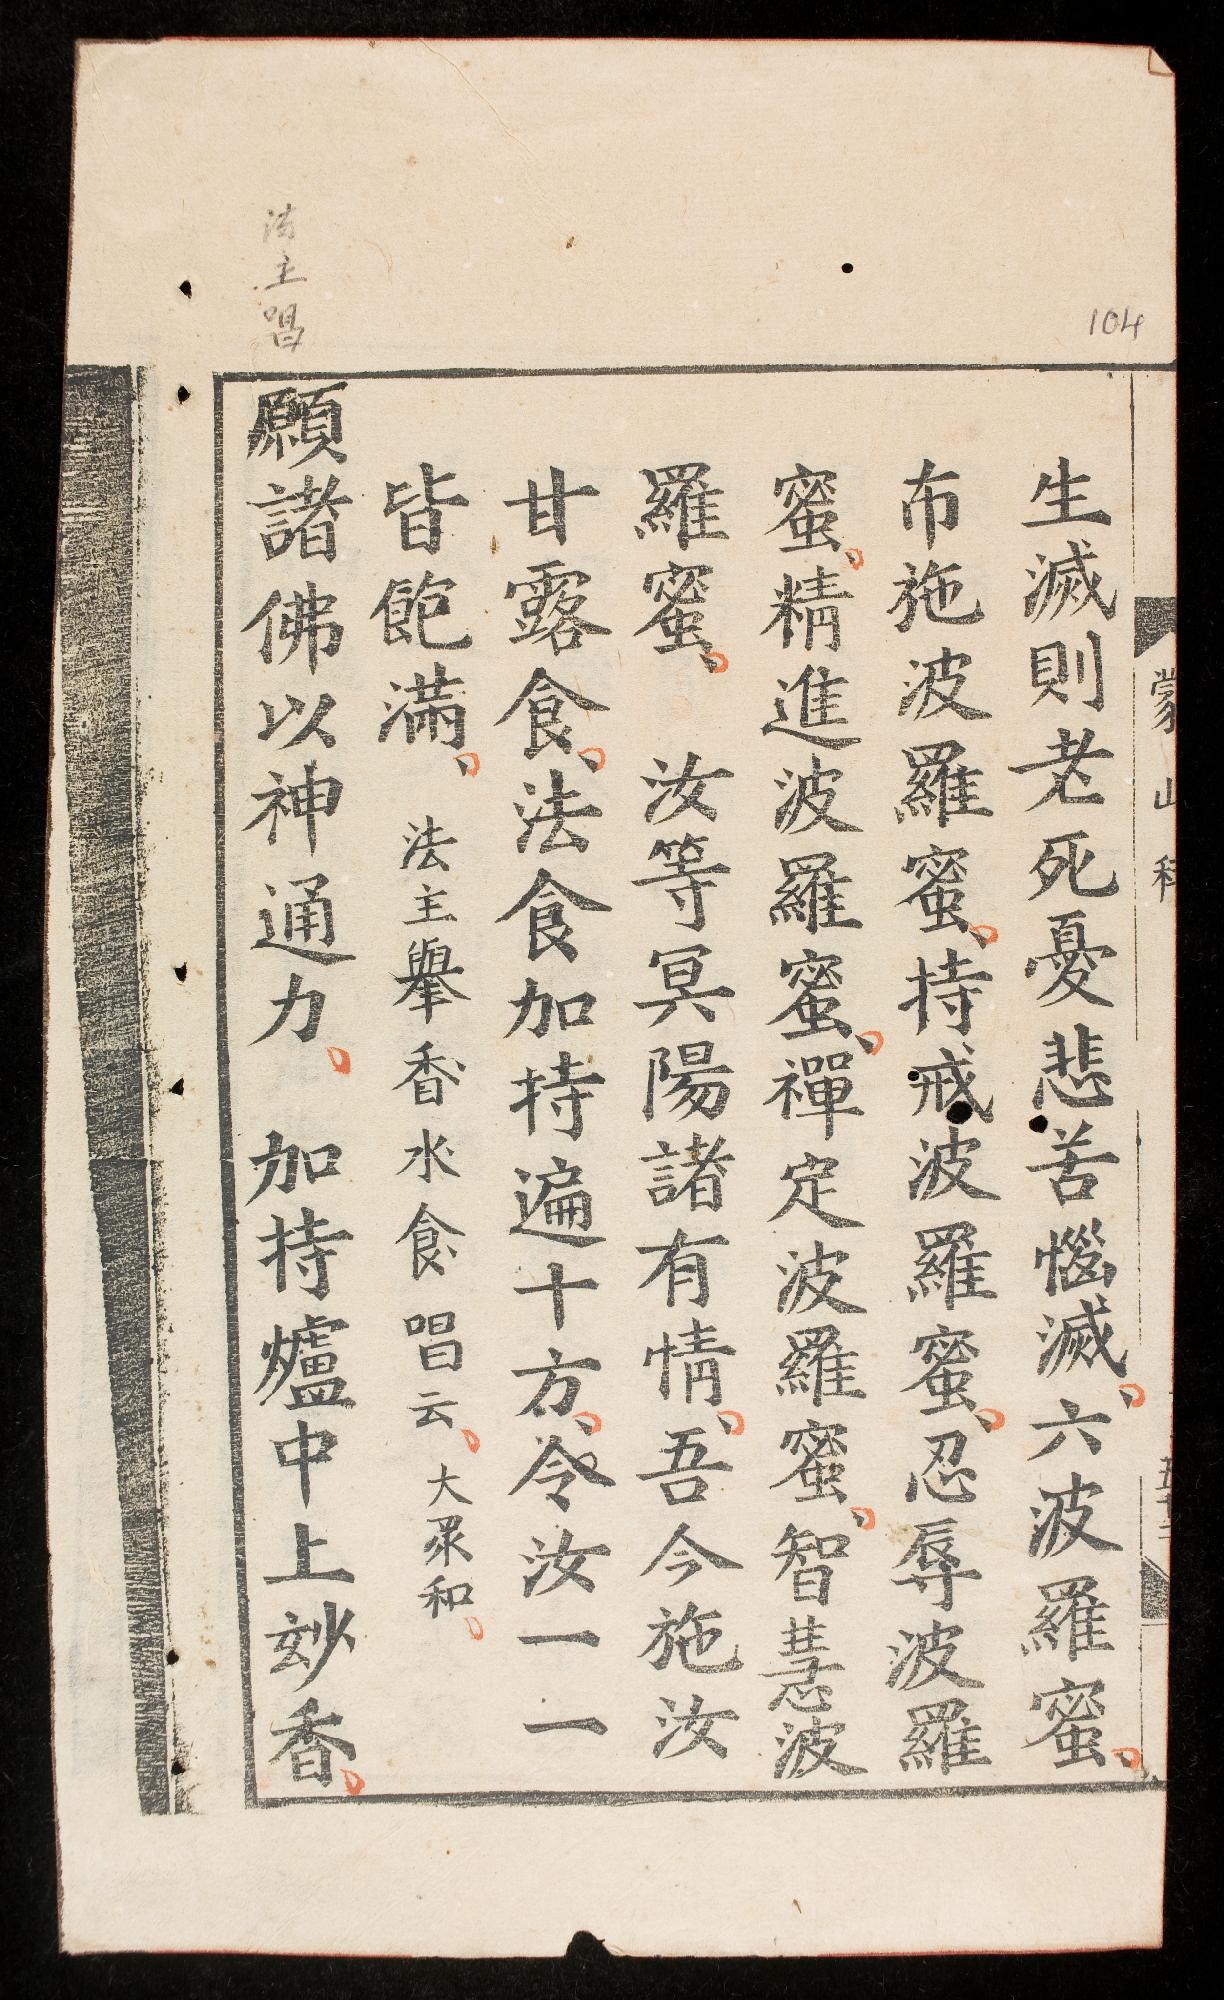 104
蒙山科
生滅則老死憂悲苦惱滅、六波羅蜜、
布施波羅蜜、持戒波羅蜜、忍辱波羅
蜜、精進波羅蜜、禪定波羅蜜、智慧波
羅蜜、汝等冥陽諸有情、吾今施汝
甘露食、法食加持遍十方、令汝一一
皆飽滿、法主舉香水食唱云、大眾和、
法主唱
願諸佛以神通力、加持爐中上妙香、